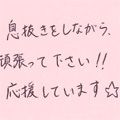 息抜きをしながら、
頑張って下さい!!
応援しています☆